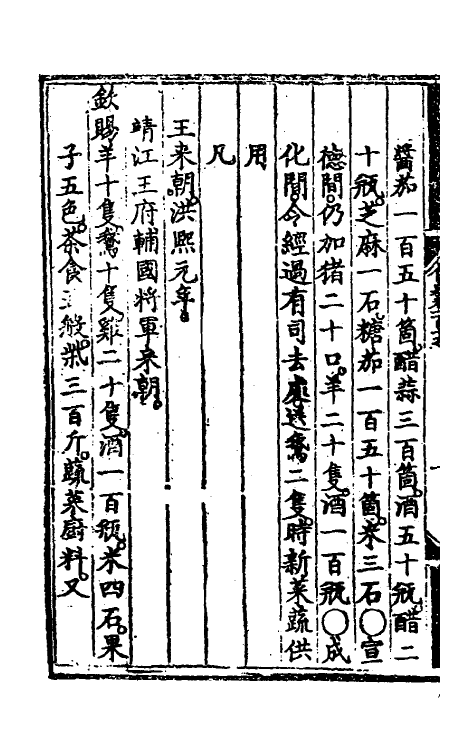 醬茄一百五十箇醋蒜三百箇酒五十瓶醋二
十瓶芝麻一石糖茄一百五十箇米三石〇宣
德間仍加猪二十口羊二十隻酒一百瓶〇成
化間今經過有司去處送鵞二隻時新菜蔬供
用
凡
王来朝洪熙元年
靖江王府輔國將軍来朝
欽賜羊十隻鵞十隻雞二十隻酒一百瓶米四石果
子五色茶食五般柴三百斤蔬菜厨料又